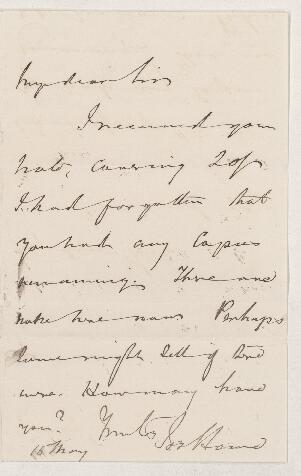 My dear Sir
I received your
note, covering 20/-
I had forgotten that
you had any Copies
remaining. There are
none here now Perhaps
some might sell if there
were. How many have
you? Yours
16 May